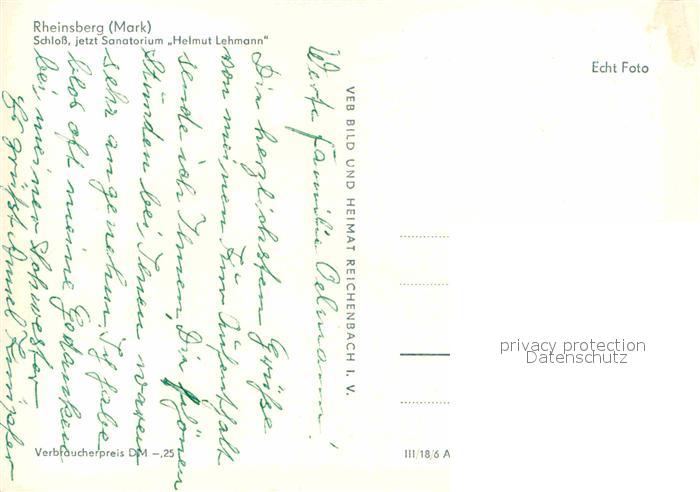 Rheinsberg (Mark)
Schloß, jetzt Sanatorium „Helmut Lehmann"
Echt Foto
Werte Familie Oelmann!
Die herzlichsten Grüße
von meinen Aufenthalt
sende ich Ihnen, Die schönen
Stunden bei Ihnen waren
sehr angenehm. Ich habe
blos oft meine Gedanken
bei meiner Schwester
Es grüßt
VEB BILD UND HEIMAT REICHENBACH I. V.
privacy protection
Datenschutz
Verbraucherpreis DM –,25
III/18/6 A